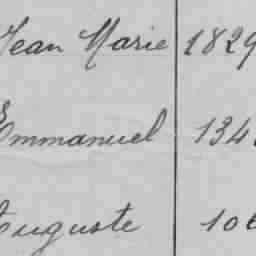 Jean Marie 1829
Emmanuel 134
Auguste 106